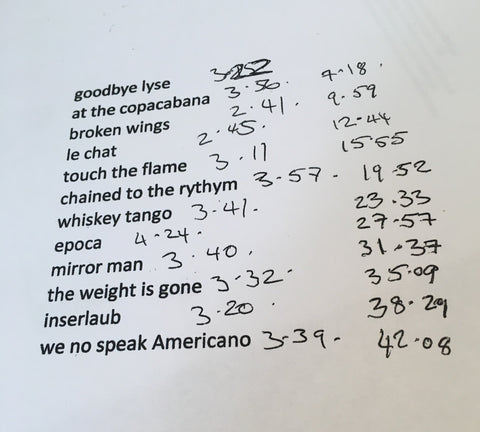 goodbye lyse
at the copacabana 3.56. 7-18.
broken wings 2.41. 9.59
le chat 2.45. 12-44
touch the flame 3.11 15-55
chained to the rythym 3-57- 19-52
whiskey tango 3-41- 23.33
epoca 4-24- 27-57
mirror man 3.40. 31-37
the weight is gone 3-32- 35.09
inserlaub 3-20. 38-29
we no speak Americano 3-39- 42.08